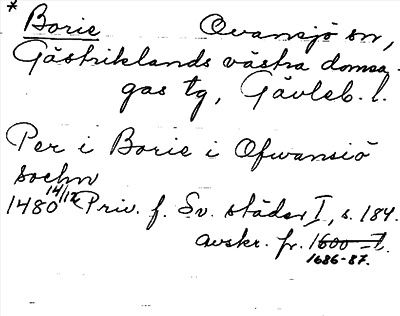 * Borie Ovansjö sn,
Gästriklands västra domsa-
gas tg, Gävleb. l.
Per i Borie i Ofwansiö
sochn
1480 14/12 Priv. f. Sv. städer I, s. 184.
avskr. fr. 1600-t.
1686-87.